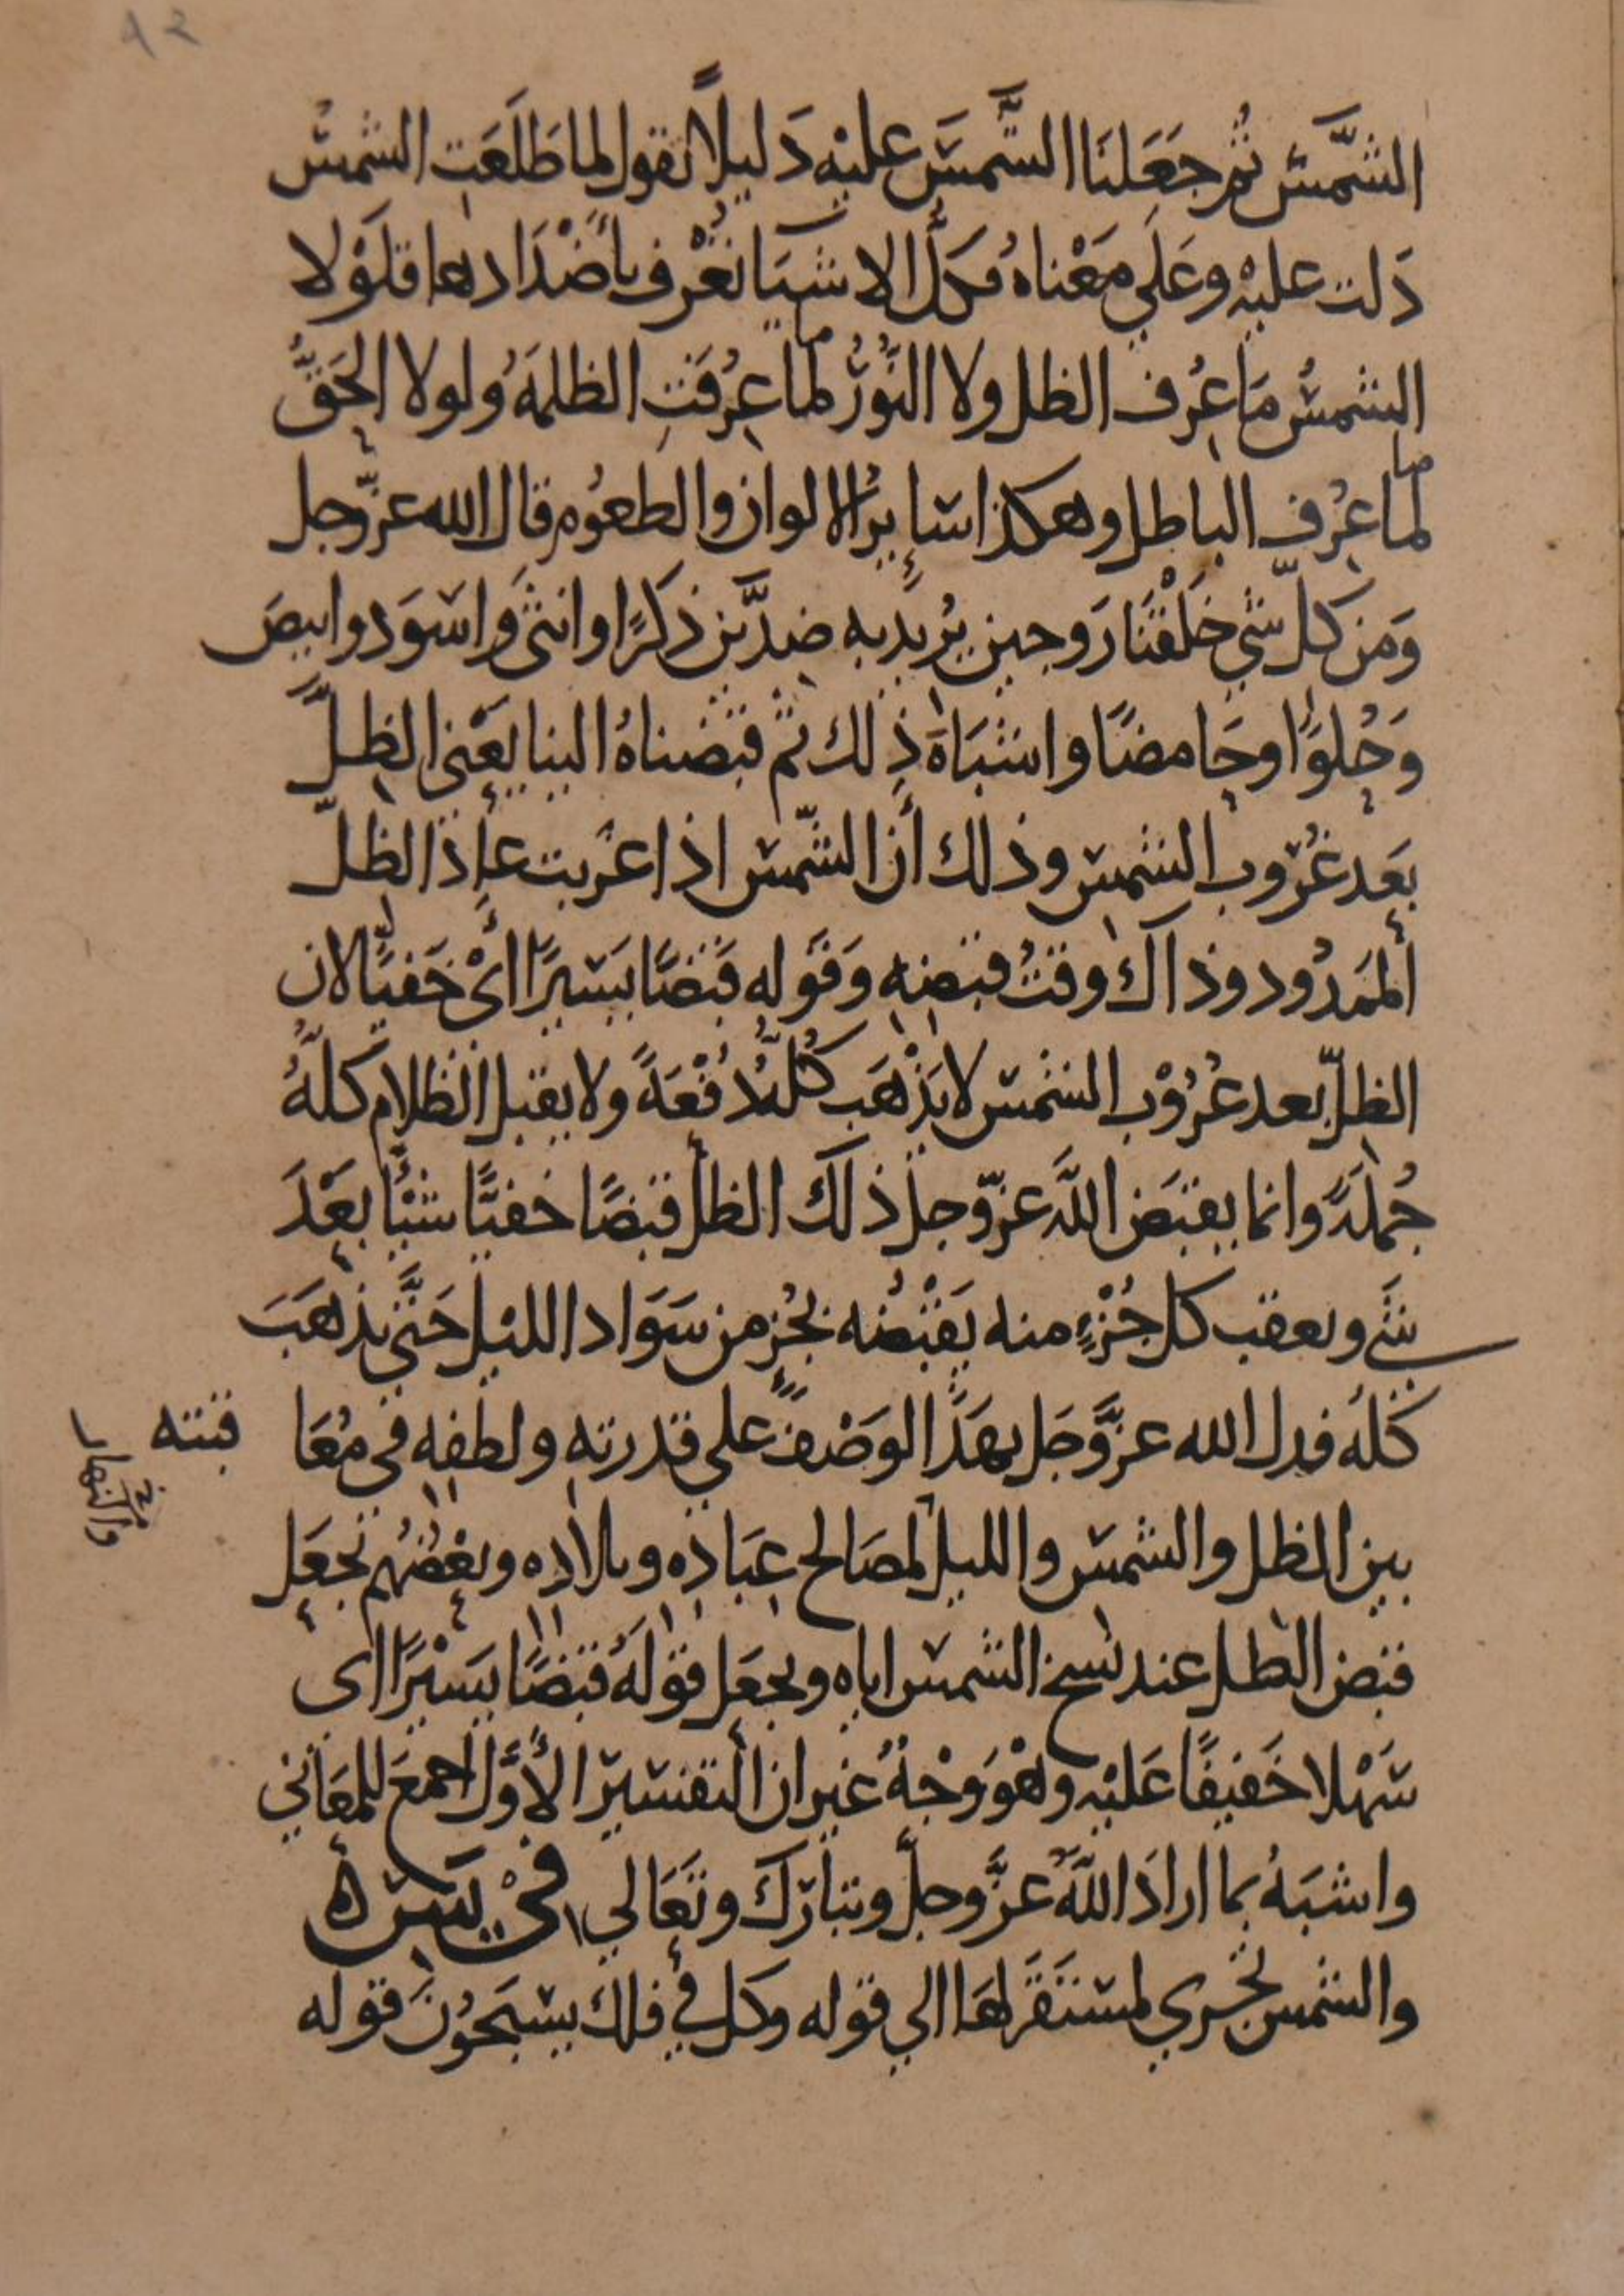 ٩٢
الشَّمْسَ ثُم جَعَلنَا الشَّمسَ عليْه دَليلًا نقول لما طَلَعَت الشمسُ
دَلت عليْه وعَلي مَعْناهُ وكلُّ الاشيَا تُعْرف بأضْدَادها فلَوْلا
الشمسُ مَا عِرُف الظل ولا النُّورُ لما عِرُفَتِ الظلمَةُ ولولا الحَقُّ
لما عِرُف الباطل وهكذا سَايرُ الالوان والطعُوم قال الله عزّوجل
وَمن كلّ شي خَلَقْنَا زَوجين يُرِيد به ضِدَّين ذكَرًا وانثى وَاسوَد وابيضَ
وَحُلوًا وحَامضًا واشبَاهَ ذِلك ثم قبَضناهُ الينا يَعْنى الظِلَّ
بعَد غُرُوب الشمسِ وذلك أن الشّمسَ اذا غرُبت عاد الظلّ
ألممَدُود وذاك وقتُ قبضِه وَقوَله قَبضًا يسَيرًا اىْ خَفيًّا لان
الظلّ بعد غُرُوْب الشمس لا يَذْهَب كُلهُ دُفْعَةً ولا يقبل الظلام كلهُ
جُملَةً وانما يقبَض اللّه عزّوجل ذلك الظل قبضًا خفيًّا شيْأ بعَدَ
شَي ويعقب كل جُزْءٍ منه يَقْبضُه بجُزءٍ من سَوَاد الليْل حَتَّى يذهَبَ
كُلهُ فدل الله عزَّوجَل بهَذَا الوَصْف علي قدرته ولطفِه فى مُعَا قبته
بين الظل والشمسَ والليل لمصَالح عِبَادِه وبلاده وبعْضُهم يجعَل
والنهار
قبض الظل عند نسخ الشمس اياه ويجعَل قوْلهُ قبَضًا يسَيْرًا اى
سَهْلا خَفيفًا عَليْه وهْوَ وَجْهُ غير ان التفسيرَ الأوَّل اجمعَ للمعَاني
واشبَهُ بما ارادَ اللّهُ عزَّوجلّ وتبارَك وتَعَالي فىْ يسَ
والشمس تجْري لمستَقَر لهَا الي قوله وكل في فلك يسْبَحُونَ قوله